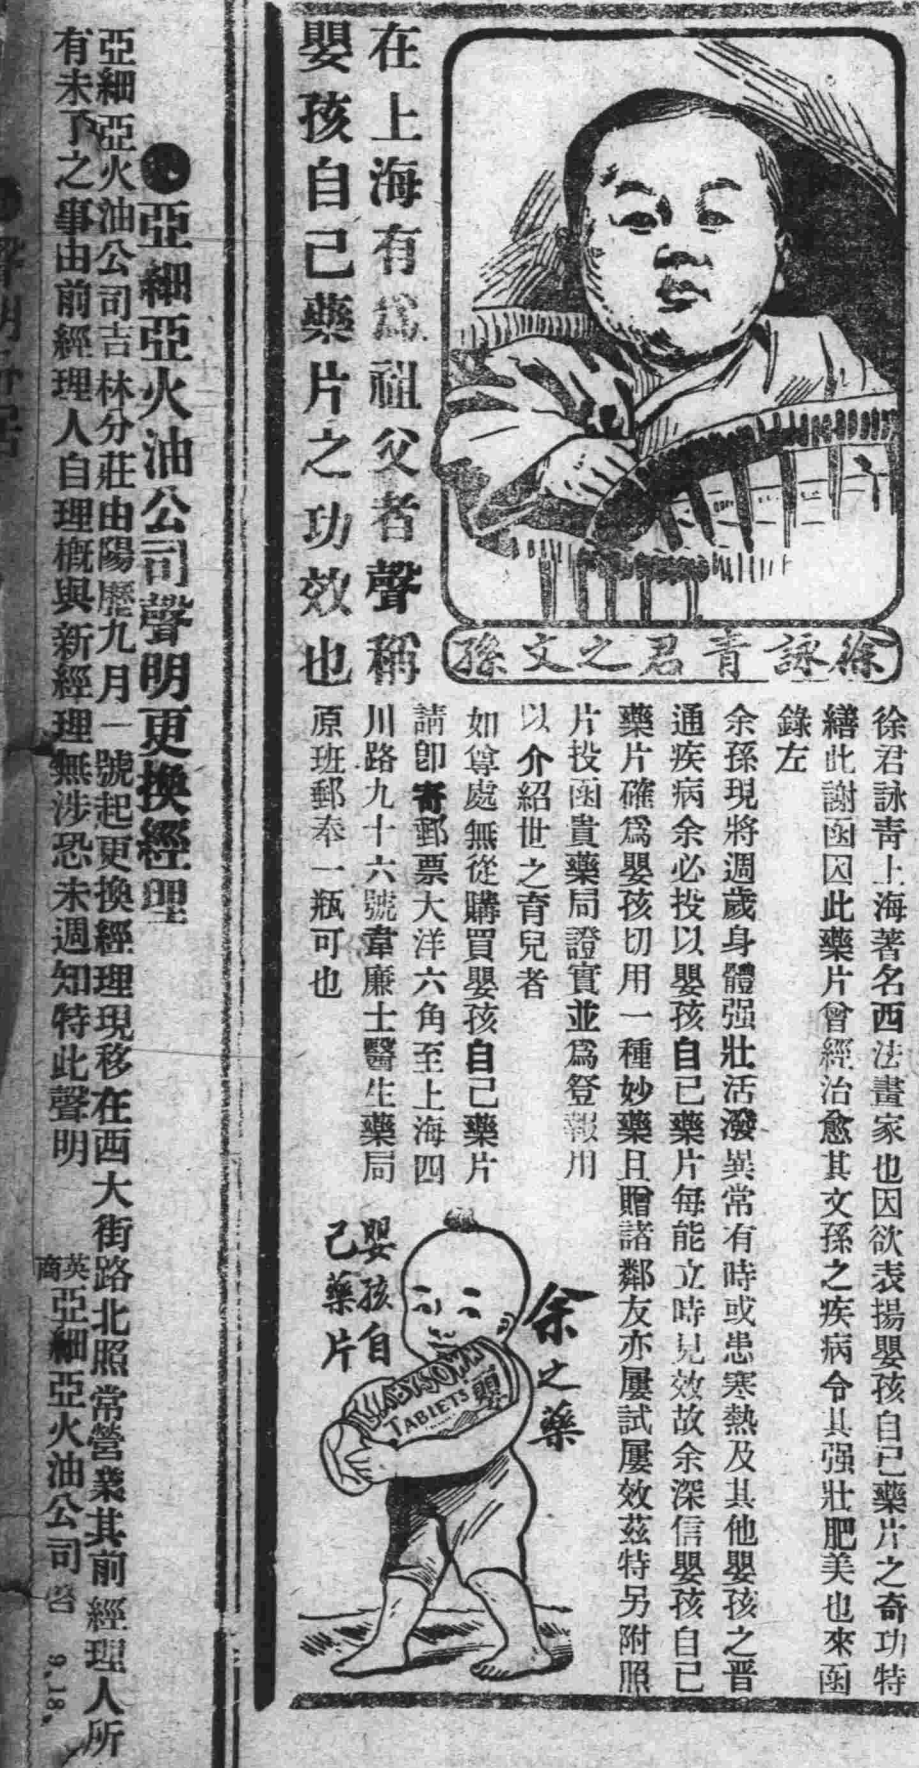 在上海有爲祖父者聲稱
嬰孩自己藥片之功效也
徐詠青君之文孫
徐君詠靑上海著名西法畫家也因欲表揚嬰孩自己藥片之奇功特
繕此謝函因此藥片曾經治愈其文孫之疾病令其强壯肥美也來函
錄左
余孫現將週歲身體强壯活潑異常有時或患寒熱及其他嬰孩之普
通疾病余必投以嬰孩自己藥片每能立時見效故余深信嬰孩自己
藥片確爲嬰孩切用一種妙藥且贈諸鄰友亦屢試屢效茲特另附照
片投函貴藥局證實並爲登報用
以介紹世之育兒者
如尊處無從購買嬰孩自己藥片
請卽寄郵票大洋六角至上海四
川路九十六號韋廉士醫生藥局
原班郵奉一瓶可也
余之藥
嬰孩自
己藥片
TABLETS
嬰
亞細亞火油公司聲明更換經理
亞細亞火油公司吉林分莊由陽歷九月一號起更換經理現移在西大街路北照常營業其前經理人所
有未了之事由前經理人自理槪與新經理無涉恐未週知特此聲明
英商
亞細亞火油公司啓
9,18,
聲明